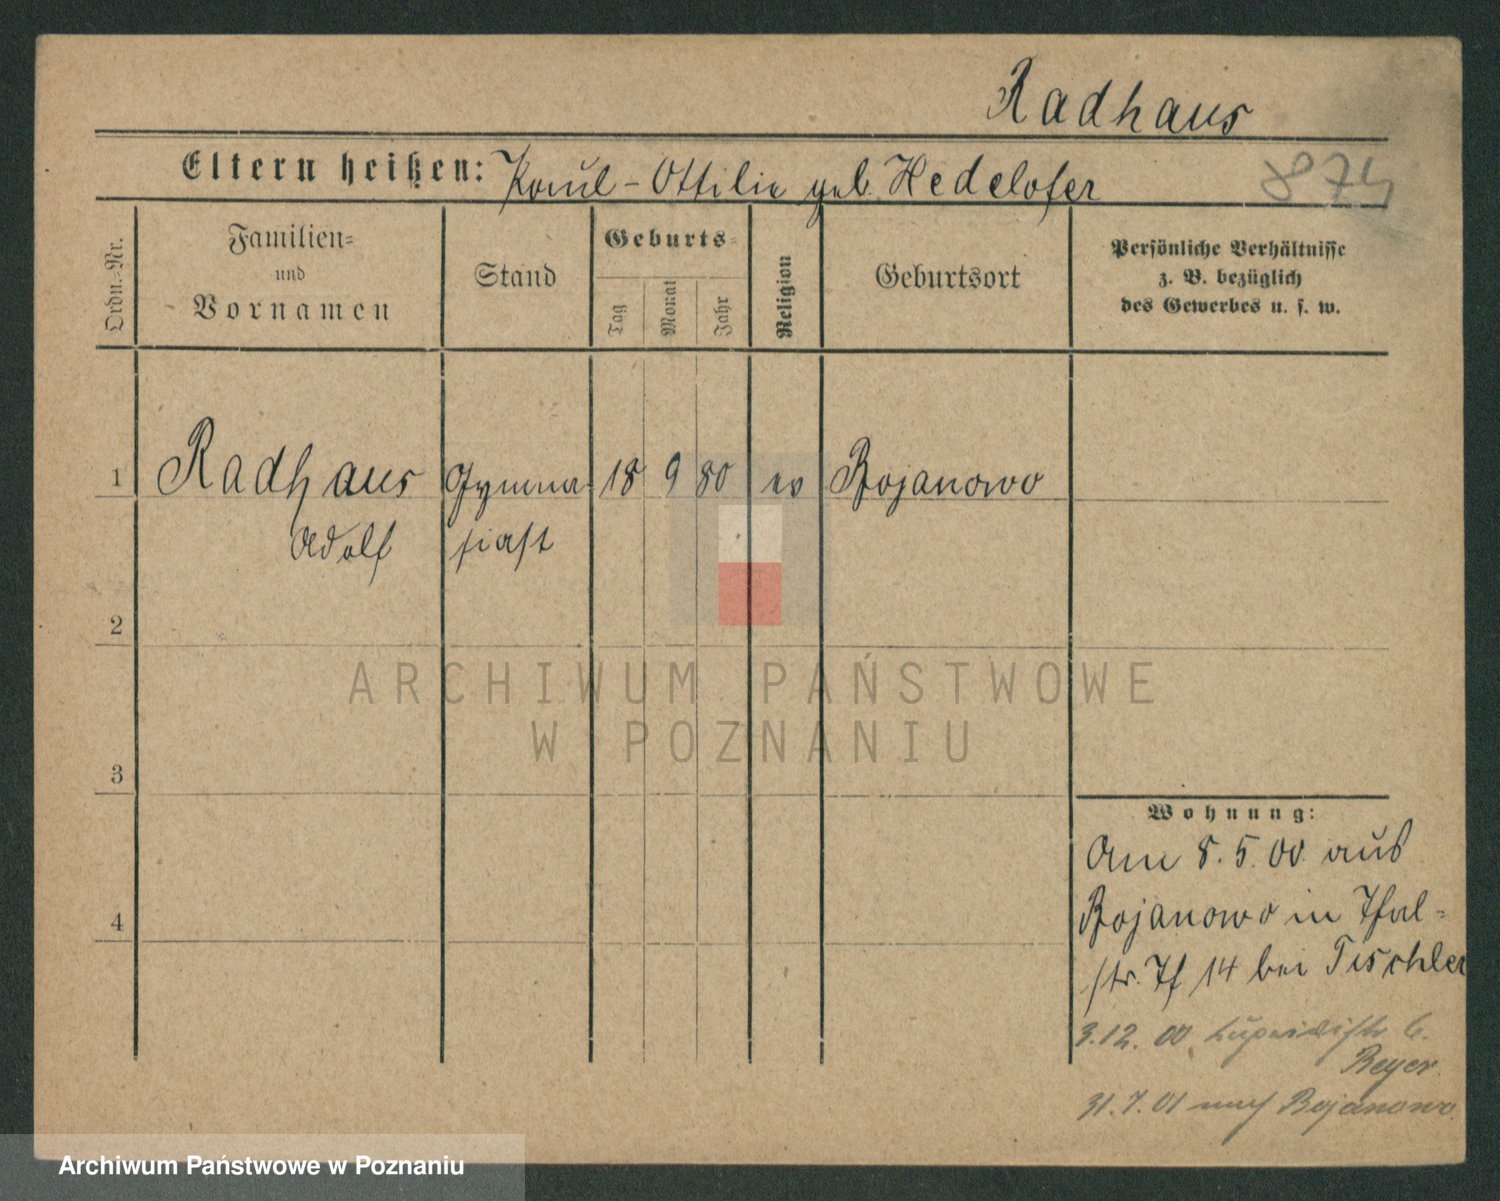 Radhaus
Eltern heißen: Paul - Ottilie geb. Hedelofer
874
Ordn.-Nr.
Familien-
und
Vornamen
Stand
Geburts-
Tag
Monat
Jahr
Religion
Geburtsort
Persönliche Verhältnisse
z. B. bezüglich
des Gewerbes u. s. w.
1 Radhaus Gymna 18 9 80 ev Bojanowo
Adolf siast
2
3
4
Wohnung:
Am 8. 5. 00. aus
Bojanowo in Thal-
str. 14 bei Tischler
3.12. 00
Beyer.
31.7.01 nach Bojanowo.
ARCHIWUM PAŃSTWOWE
W POZNANIU
Archiwum Państwowe w Poznaniu